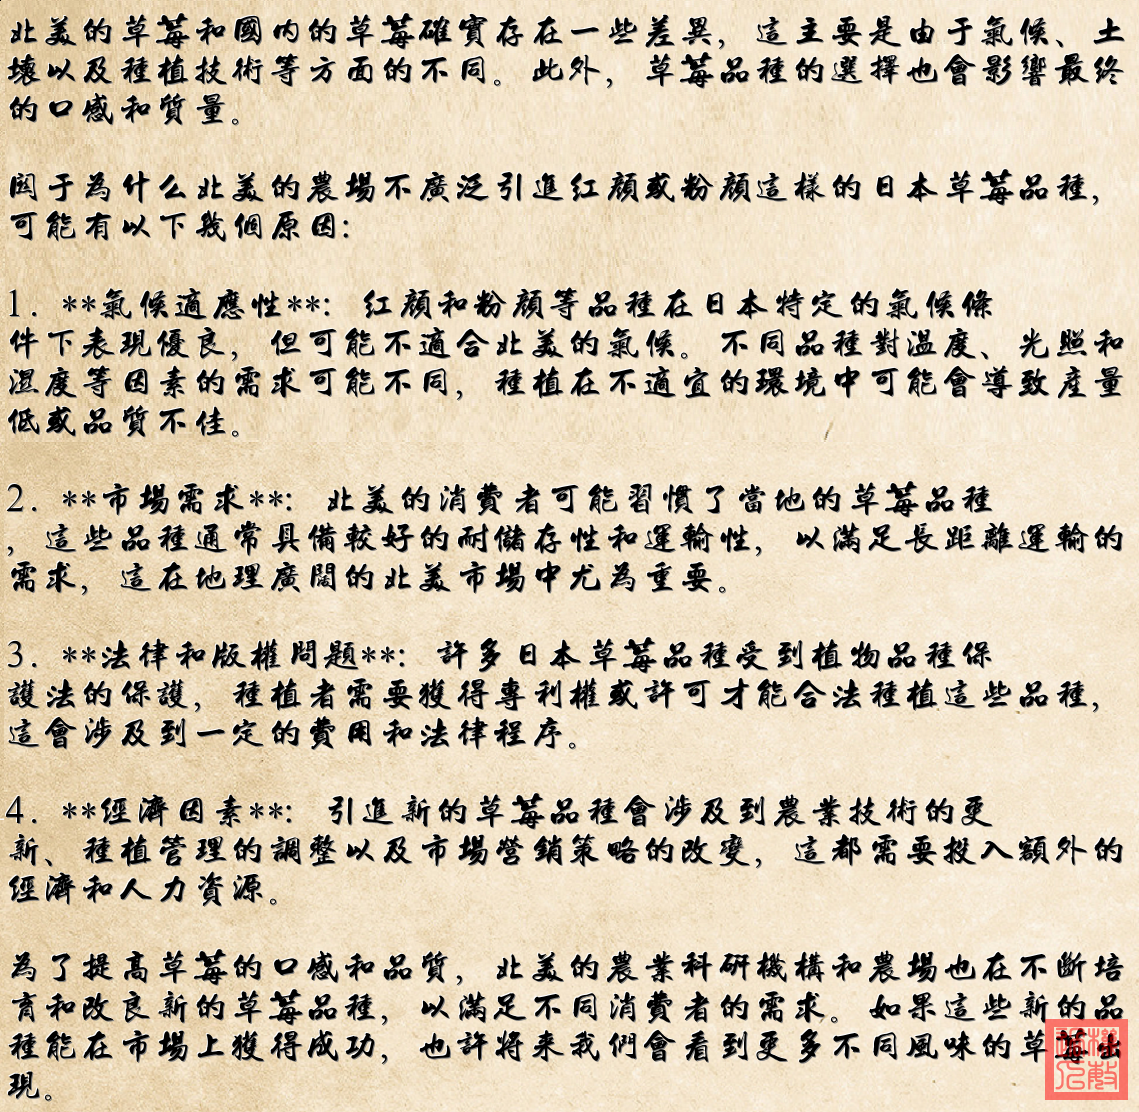 北美的草莓和國内的草莓確實存在一些差異，這主要是由于氣候、土
壤以及種植技術等方面的不同。此外，草莓品種的選擇也會影響最終
的口感和質量。
関于為什么北美的農場不廣泛引進紅顔或粉顔這樣的日本草莓品種，
可能有以下幾個原因：
1. **氣候適應性**：紅顔和粉顔等品種在日本特定的氣候條
件下表現優良，但可能不適合北美的氣候。不同品種對温度、光照和
濕度等因素的需求可能不同，種植在不適宜的環境中可能會導致産量
低或品質不佳。
2. **市場需求**：北美的消費者可能習慣了當地的草莓品種
，這些品種通常具備較好的耐儲存性和運輸性，以滿足長距離運輸的
需求，這在地理廣闊的北美市場中尤為重要。
3. **法律和版權問題**：許多日本草莓品種受到植物品種保
護法的保護，種植者需要獲得專利權或許可才能合法種植這些品種，
這會涉及到一定的費用和法律程序。
4. **經濟因素**：引進新的草莓品種會涉及到農業技術的更
新、種植管理的調整以及市場營銷策略的改變，這都需要投入額外的
經濟和人力資源。
為了提高草莓的口感和品質，北美的農業科研機構和農場也在不斷培
育和改良新的草莓品種，以滿足不同消費者的需求。如果這些新的品
種能在市場上獲得成功，也許將來我們會看到更多不同風味的草莓出
現。